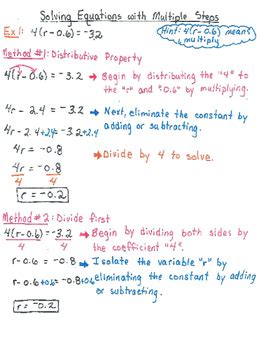 Solving Equations with Multiple Steps
Ex1: 4(r-0.6) = -3.2
Hint: 4(r-0.6) means
multiply
Method #1: Distributive Property
4(r-0.6) = -3.2 → Begin by distributing the "4" to
the "r" and "0.6" by multiplying.
4r - 2.4 = -3.2 → Next, eliminate the constant by
adding or subtracting.
4r-2.4+2.4=-3.2+2.4
4r = -0.8 → Divide by 4 to solve.
4r = -0.8
4 4
r = -0.2
Method #2: Divide first
4(r-0.6) = -3.2 → Begin by dividing both sides by
4 4 the coefficient "4".
r-0.6 = -0.8 → Isolate the variable "r" by
r-0.6+0.6=-0.8+0.6 eliminating the constant by adding
or subtracting.
r = -0.2